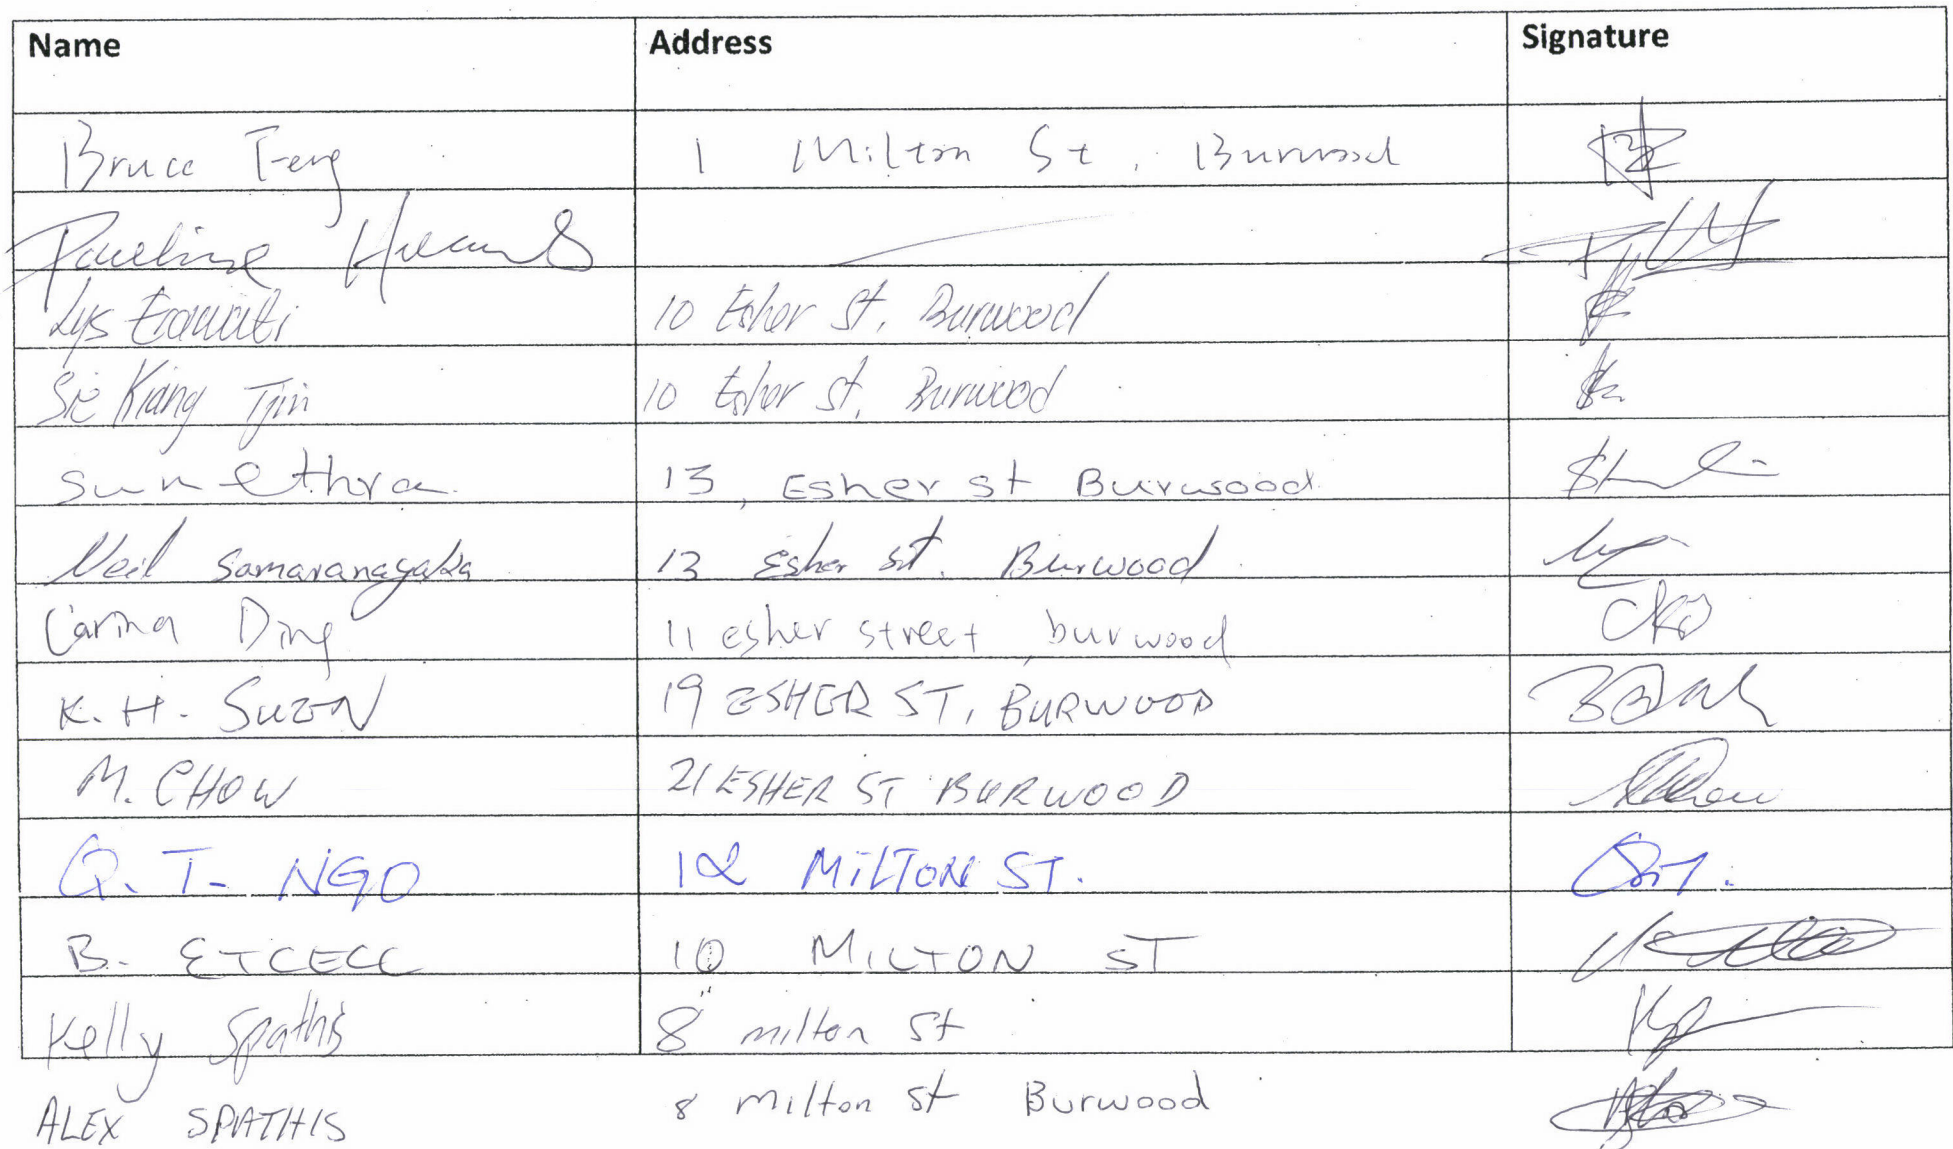 Name Address Signature
Bruce Feng 1 Milton St, Burwood
Pauline
Lys Erawati 10 Esher St, Burwood
Sie Kiang Tjin 10 Esher St, Burwood
Sunethra 13, Esher st Burwood
Neil Samaranayaka 13 Esher st. Burwood
Carina Ding 11 esher street, burwood
K. H. SUEN 19 ESHER ST, BURWOOD
M. CHOW 21 ESHER ST BURWOOD
Q. T. NGO 12 MILTON ST.
B. ETCELL 10 MILTON ST
Kelly Spathis 8 milton St
ALEX SPATHIS 8 Milton St Burwood